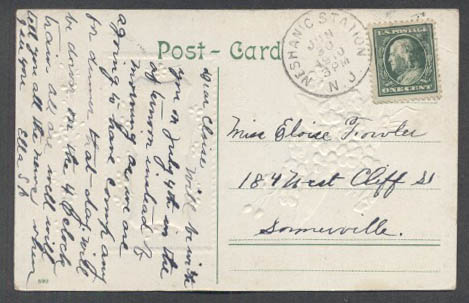 Post - Card
NESHANIC STATION
JUN
30
3 PM
N.J.
U.S. POSTAGE
ONE CENT
Dear Eloise Will be with
you on July 4th in the
afternoon instead of
morning as we are
agoing to have company
for dinner that day. will
be down on the 4 oclock
train all are well will
tell you all the news when
I see you
Ella S A
Miss Eloise Fowler
184 West Cliff St
Somerville.